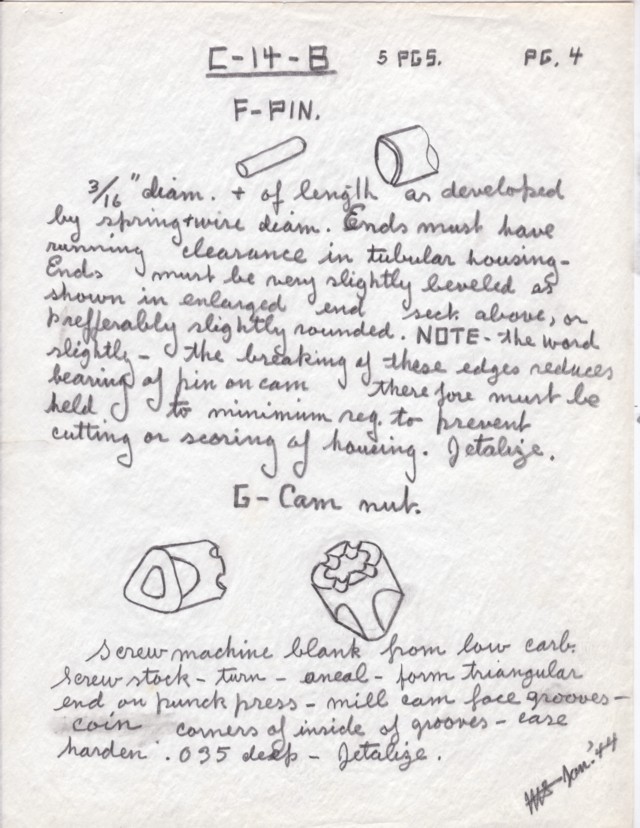 C-14-B 5 PGS. PG. 4
F-PIN.
3/16" diam. + of length as developed
by spring+wire diam. Ends must have
running clearance in tubular housing-
Ends must be very slightly beveled as
shown in enlarged end sect. above, or
prefferably slightly rounded. NOTE-the word
slightly- the breaking of these edges reduces
bearing of pin on cam therefore must be
held to minimum req. to prevent
cutting or scoring of housing. Jetalize.
G-Cam nut.
Screw machine blank from low carb.
screw stock-turn-aneal-form triangular
end on punck press-mill cam face grooves-
coin corners of inside of grooves-case
harden .035 deep-Jetalize.
Jan.'44